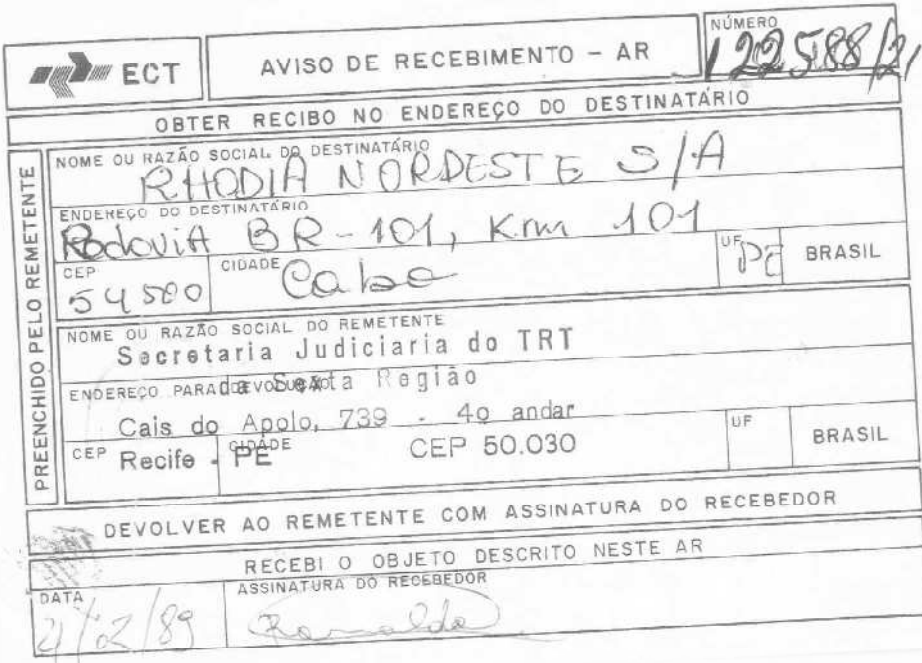 ECT
AVISO DE RECEBIMENTO – AR
NÚMERO
122588/2
OBTER RECIBO NO ENDEREÇO DO DESTINATÁRIO
PREENCHIDO PELO REMETENTE
NOME OU RAZÃO SOCIAL DO DESTINATÁRIO
RHODIA NORDESTE S/A
ENDEREÇO DO DESTINATÁRIO
RodoviA BR-101, Km 101
CEP
54500
CIDADE
Cabo
UF
PE
BRASIL
NOME OU RAZÃO SOCIAL DO REMETENTE
Secretaria Judiciaria do TRT
ENDEREÇO PARA DEVOLUÇÃO
da Sexta Região
Cais do Apolo, 739 - 4o andar
CEP
CIDADE
UF
Recife - PE CEP 50.030
BRASIL
DEVOLVER AO REMETENTE COM ASSINATURA DO RECEBEDOR
RECEBI O OBJETO DESCRITO NESTE AR
DATA
/02/89
ASSINATURA DO RECEBEDOR